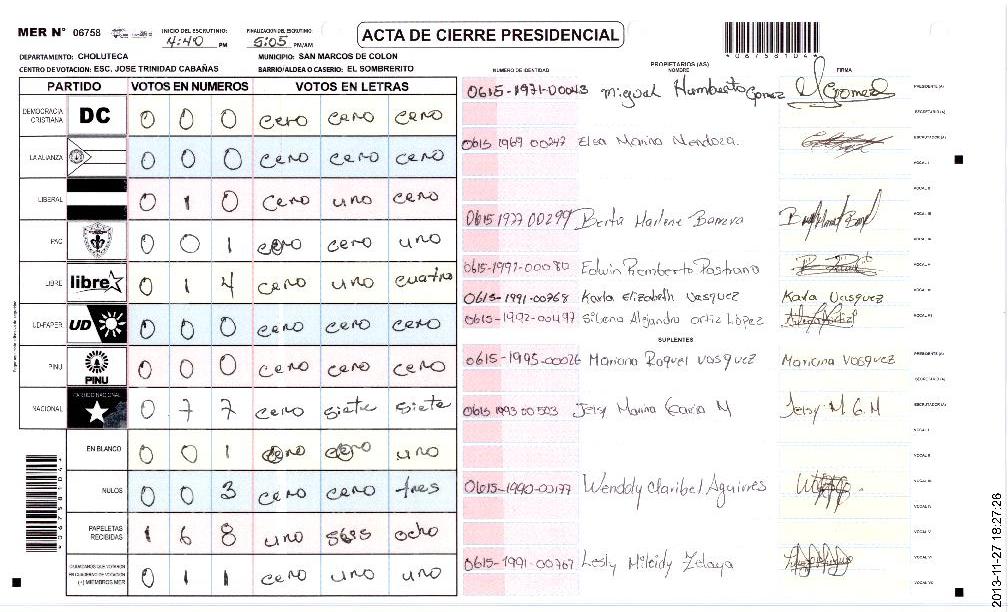 MER N° 06758
INICIO DEL ESCRUTINIO: 4:40 PM
FINALIZACION DEL ESCRUTINIO 5:05 PM/AM
ACTA DE CIERRE PRESIDENCIAL
*06758104*
DEPARTAMENTO: CHOLUTECA
MUNICIPIO: SAN MARCOS DE COLON
CENTRO DE VOTACION: ESC. JOSE TRINIDAD CABAÑAS
BARRIO/ALDEA O CASERIO: EL SOMBRERITO
PARTIDO VOTOS EN NUMEROS VOTOS EN LETRAS
DEMOCRACIA CRISTIANA DC 0 0 0 cero cero cero
LA ALIANZA 0 0 0 cero cero cero
LIBERAL 0 1 0 cero uno cero
PAC 0 0 1 cero cero uno
LIBRE libre 0 1 4 cero uno cuatro
UD-FAPER UD 0 0 0 cero cero cero
PINU PINU 0 0 0 cero cero cero
NACIONAL PARTIDO NACIONAL 0 7 7 cero siete siete
EN BLANCO 0 0 1 cero cero uno
NULOS 0 0 3 cero cero tres
PAPELETAS RECIBIDAS 1 6 8 uno seis ocho
CIUDADANOS QUE VOTARON EN CUADERNO DE VOTACION (+) MIEMBROS MER 0 1 1 cero uno uno
NUMERO DE IDENTIDAD PROPIETARIOS (AS) NOMBRE FIRMA
0615-1971-00043 Miguel Humberto Gomez PRESIDENTE (A)
SECRETARIO (A)
0615 1969 00247 Elsa Marina Mendoza. ESCRUTADOR (A)
VOCAL I
VOCAL II
0615 1977 00299 Berta Marlene Barrera VOCAL III
VOCAL IV
0615-1997-00080 Edwin Remberto Pastrana VOCAL V
0615-1991-00768 Karla Elizabeth Vasquez Karla Vasquez
0615-1992-00497 Silena Alejandra Ortiz López VOCAL VI
SUPLENTES
0615-1995-00026 Mariana Raquel Vasquez Mariana Vasquez PRESIDENTE (A)
SECRETARIO (A)
0615 1993 00503 Jelsy Marina Garia M Jelsy M G. M ESCRUTADOR (A)
VOCAL I
VOCAL II
0615-1990-00177 Wendoly Claribel Aguirres VOCAL III
VOCAL IV
VOCAL V
0615-1991-00767 Lesly Mileidy Zelaya VOCAL VI
VOCAL VII
*06758104*
2013-11-27 18:27:26